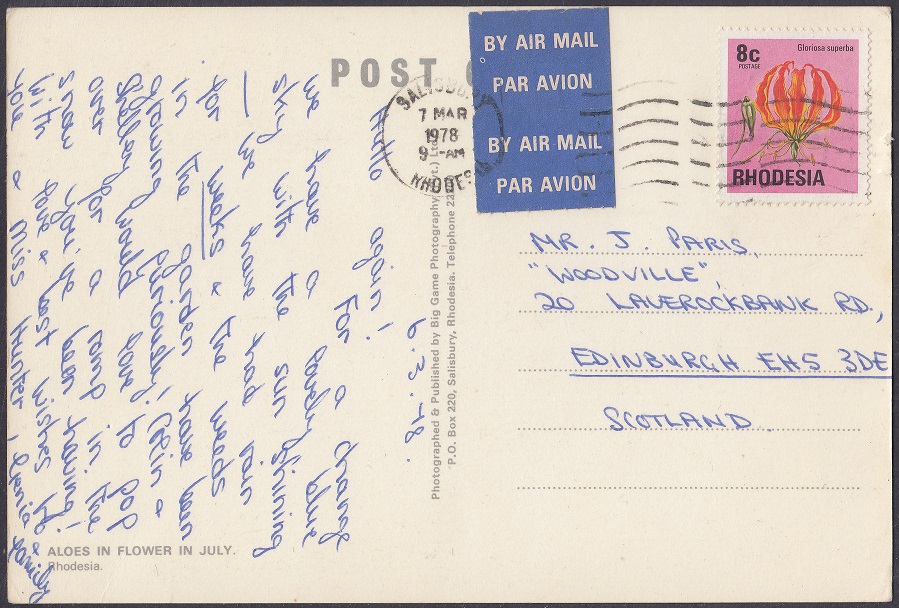 POST
BY AIR MAIL
PAR AVION
BY AIR MAIL
PAR AVION
SALISBURY
7 MAR
1978
9 - AM
RHODESIA
8c
POSTAGE
Gloriosa superba
RHODESIA
6.3.78.
Hello again! For a change
we have a lovely blue
sky with the sun shining
— we have had rain
for weeks & the weeds
in the garden have been
growing furiously!
over for a in the
snow you're having!
with love & best wishes to
you & Miss Hunter, & family
Photographed & Published by Big Game Photography Ltd.
P.O. Box 220, Salisbury, Rhodesia. Telephone
MR. J. PARIS,
"WOODVILLE",
20 LAVEROCKBANK RD,
EDINBURGH EH5 3DE
SCOTLAND.
ALOES IN FLOWER IN JULY.
Rhodesia.